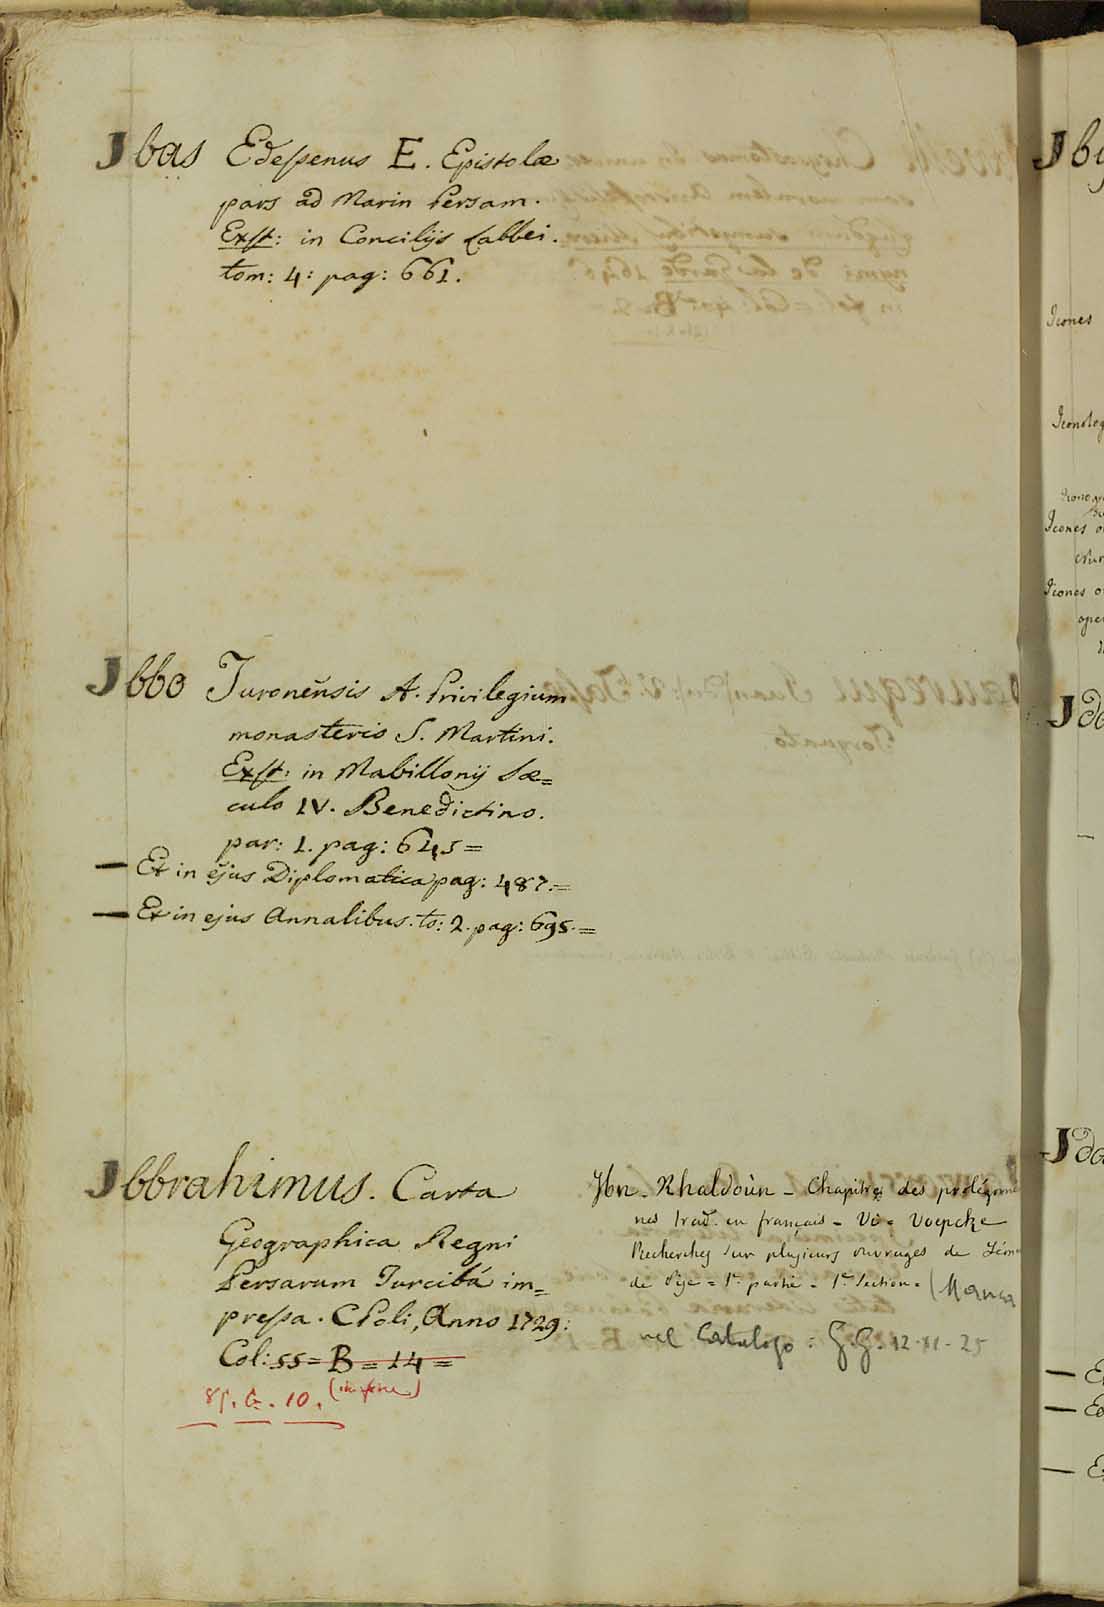 Jbas Edessenus E. Epistolæ
pars ad Marin Persam.
Exst: in Concilijs Labbei.
tom: 4: pag: 661.
Jbbo Turonensis A. Privilegium
monasterio S. Martini.
Exst: in Mabillonij Sæ=
culo IV. Benedictino.
par: 1. pag: 645=
— Et in ejus Diplomatica pag: 487.=
— Et in ejus Annalibus. to: 2. pag: 695.=
Jbbrahimus. Carta
Geographica Regni
Persarum Turcibá im=
pressa. CPoli, Anno 1729:
Col: 55= B = 14 =
85. G. 10. (in fine)
Jbn-Khaldoùn - Chapitres des prolégomè
nes trad. en français - Vi = Voepcke
Recherches sur plusieurs ouvrages de Léon
de Pise = 1e. partie - 1e. Section = (Manca
nel Catalogo: G.G. 12-XI-25
Jby
Icones
Iconolog
Icones o
Icones o
ope
Jd
Jda
— E
— E
— E